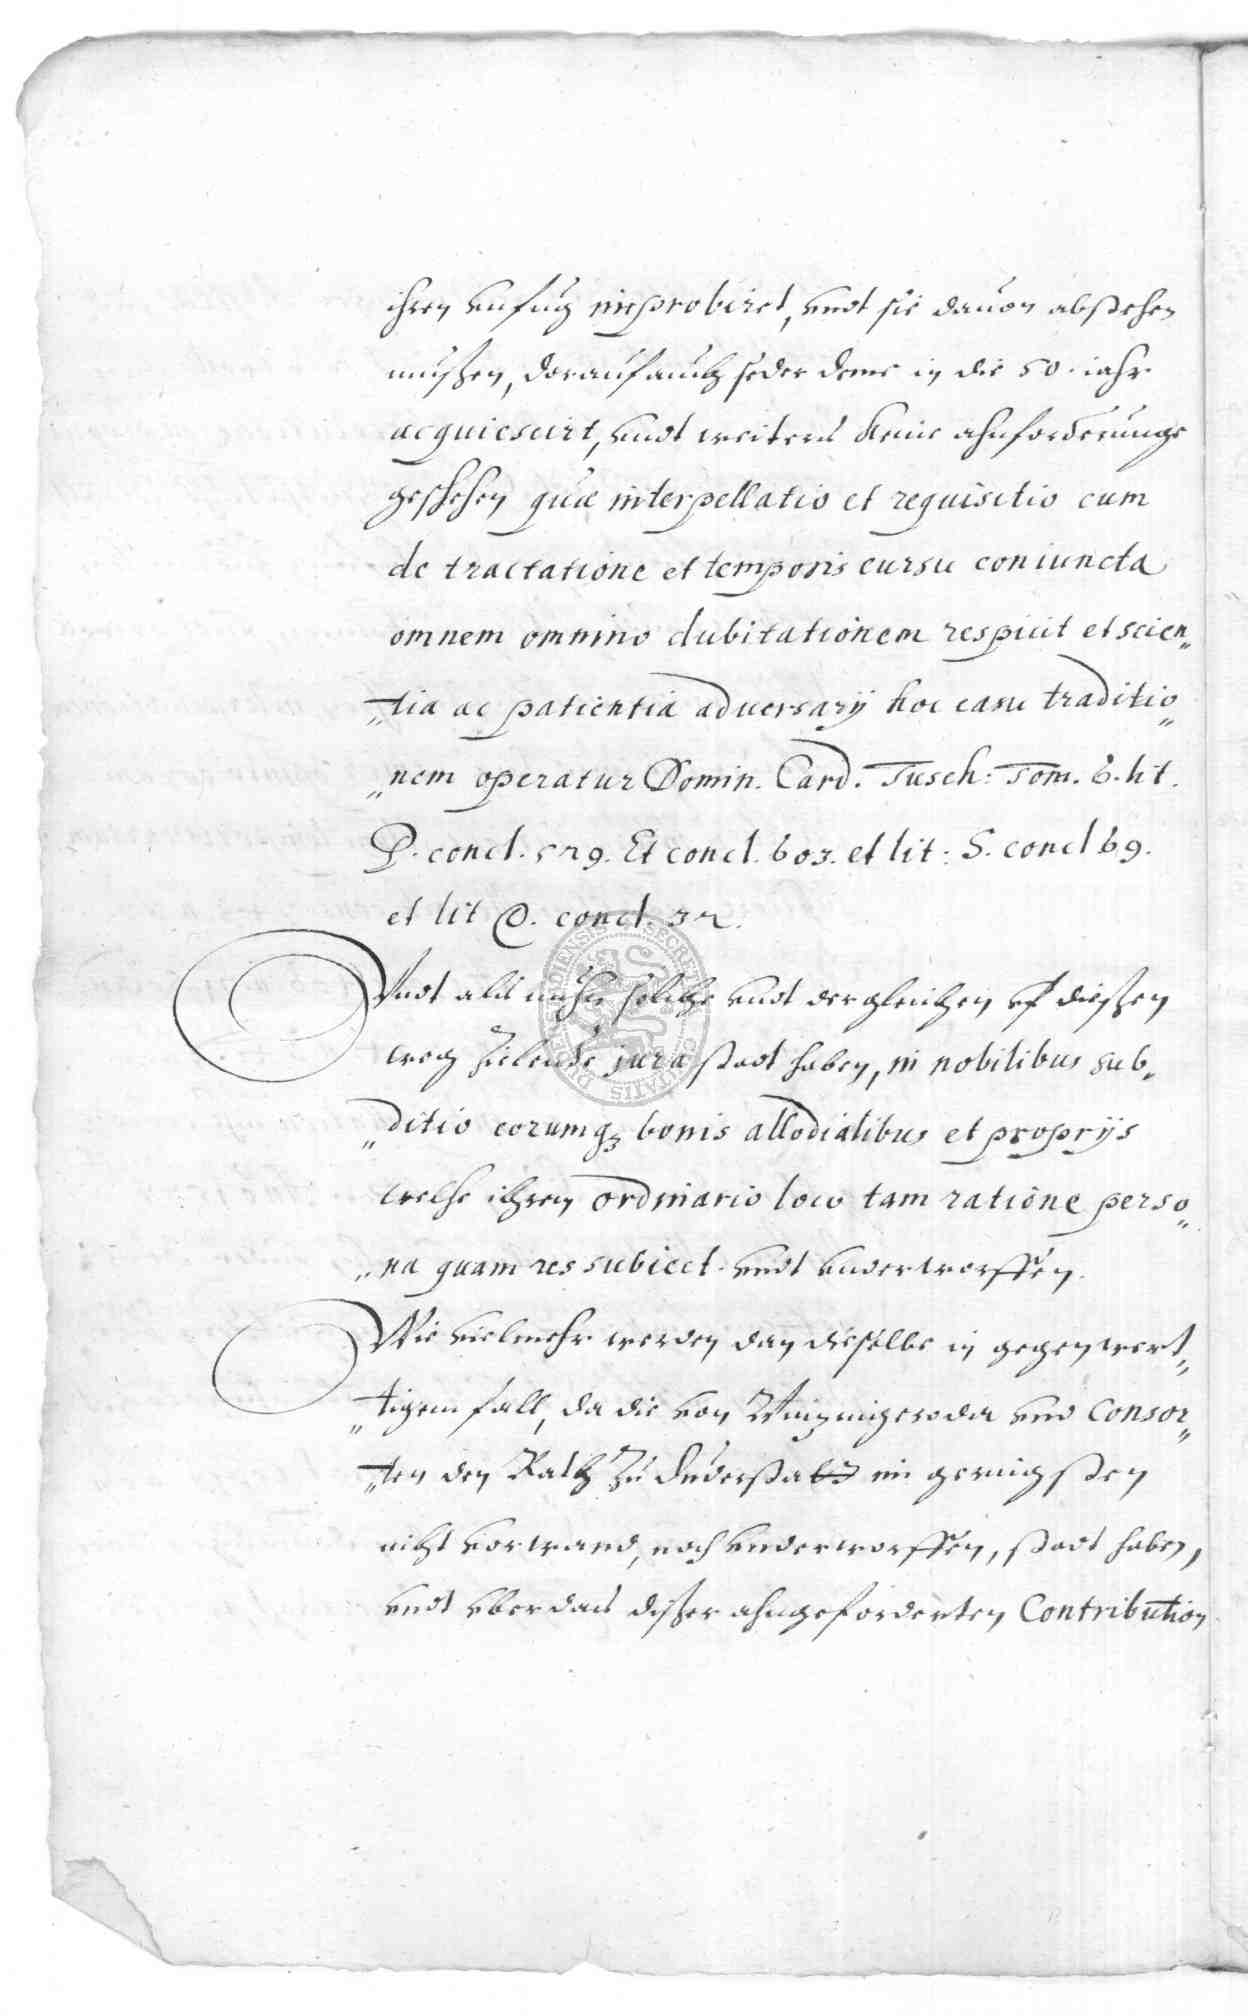 ihren unfug improbiret, undt sie dauon abstehen
mußen, darauf auch seder deme in die 50. iahr
acquiescirt, undt weiters keine ahnforderunge
geschehen quæ interpellatio et requisitio cum
de tractatione et temporis cursu coniuncta
omnem omnino dubitationem respicit et scien„
„tia ac patientia adversarij hoc casu traditio„
„nem operatur Domin. Card. Tusch: Tom. 6. lit.
P. concl. 529. Et concl. 603. et lit: S. concl 69.
et lit C. concl. 32.
Undt als nuhn solche undt dergleichen uf dießen
weg zielende jura stadt haben, in nobilibus sub„
„ditis eorumq3 bonis allodialibus et proprijs
welche ihrem ordinario loco tam ratione perso„
„na quam res subiect. undt underworffen.
Wie vielmehr werden dan dieselbe in gegenwert„
„tigem fall, da die von Wintzingeroda und Consor„
„ten den Rath zu Duderstadt im geringsten
nicht vorwand, noch underworffen, stadt haben,
undt uber das dißer ahngeforderten Contribution